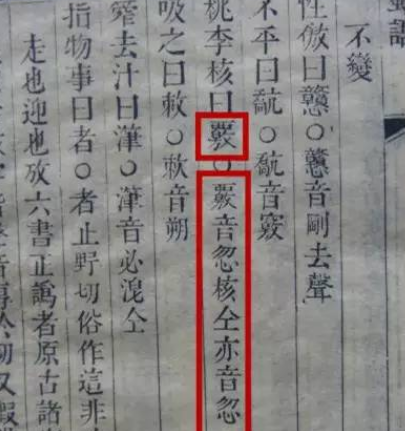 不變
性傲曰戇○戇音剛去聲
不平曰○音竅
桃李核曰覈○覈音忽核仝亦音忽
吸之曰欶○欶音朔
窄去汁曰潷○潷音必滗仝
指物事曰者○者止野切俗作這非
走也迎也攷六書正譌者原古諸